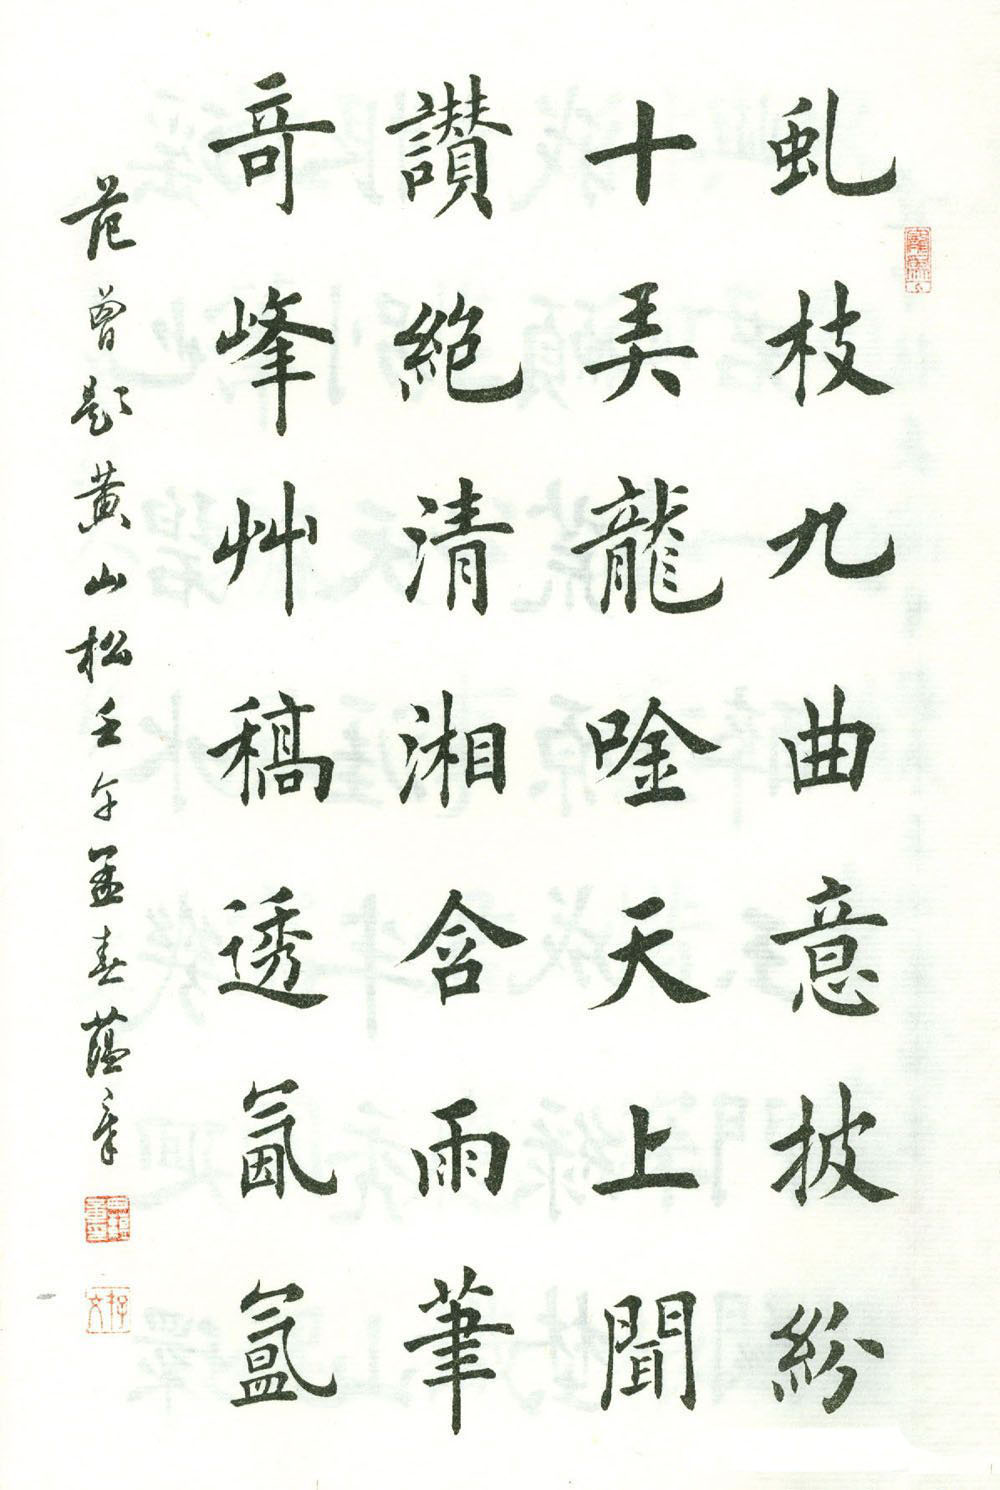 虬枝九曲意披紛
十美龍唫天上聞
讚絶清湘含雨筆
奇峰艸稿透氤氳
范曾題黄山松壬午孟春蕴章